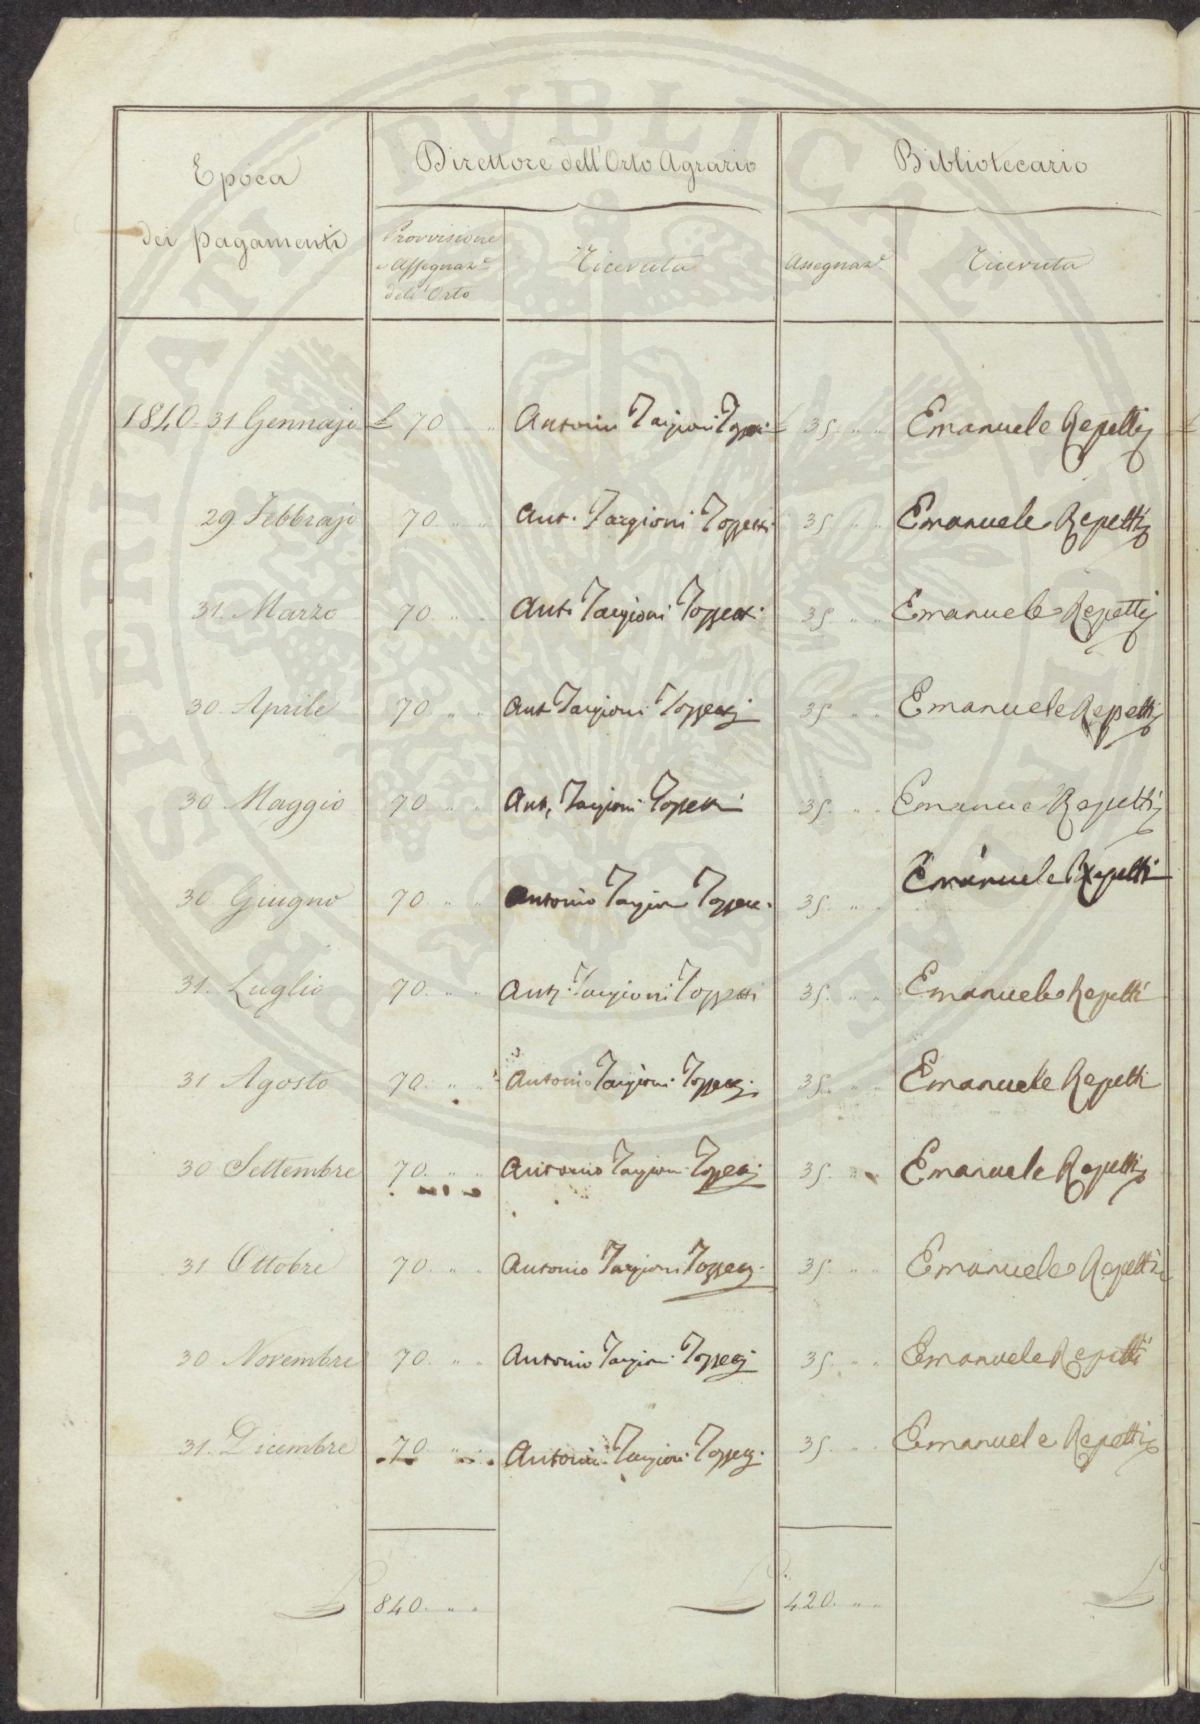 Epoca
dei pagamenti
Direttore dell'Orto Agrario
Bibliotecario
Provvisione
e Assegnaz.e
dell'Orto
Ricevuta
Assegnaz.e
Ricevuta
1840. 31 Gennajo £ 70 „ „ Antonio Targioni Tozzetti £ 35. „ „ Emanuele Repetti
29 Febbrajo 70 „ „ Ant. Targioni Tozzetti 35 „ „ Emanuele Repetti
31. Marzo 70 „ „ Ant. Targioni Tozzetti 35 „ „ Emanuele Repetti
30. Aprile 70 „ „ Ant Targioni Tozzetti 35 „ „ Emanuele Repetti
30 Maggio 70 „ „ Ant. Targioni Tozzetti 35. „ „ Emanuele Repetti
30 Giugno 70 „ „ Antonio Targioni Tozzetti. 35. „ „ Emanuele Repetti
31. Luglio 70. „ „ Ant. Targioni Tozzetti 35. „ „ Emanuele Repetti
31 Agosto 70. „ „ Antonio Targioni Tozzetti. 35. „ „ Emanuele Repetti
30 Settembre 70. „ „ Antonio Targioni Tozzetti 35. „ „ Emanuele Repetti
31 Ottobre 70. „ „ Antonio Targioni Tozzetti. 35. „ „ Emanuele Repetti
30 Novembre 70. „ „ Antonio Targioni Tozzetti 35. „ „ Emanuele Repetti
31. Dicembre 70 „ „ Antonio Targioni Tozzetti. 35. „ „ Emanuele Repetti
£ 840. „ „ £ 420. „ „ £
PROSPERITATI PUBLICAE AUGENDAE